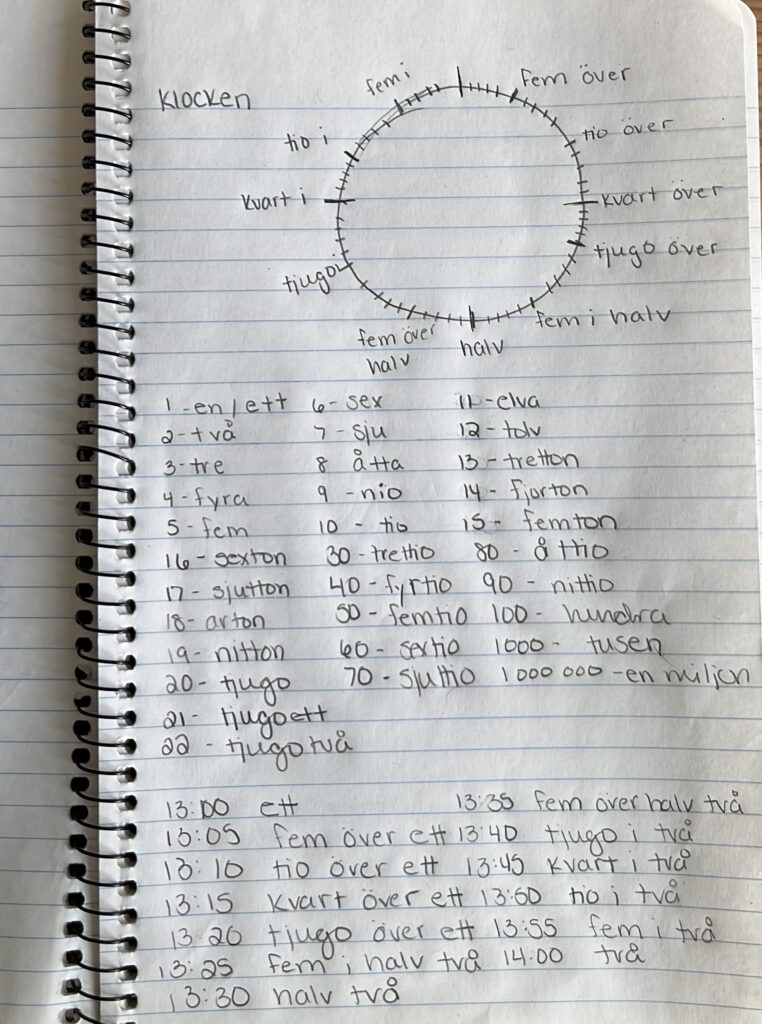 Klocken
fem i
fem över
tio i
tio över
kvart i
kvart över
tjugo i
tjugo över
fem över halv
halv
fem i halv
1 - en / ett 6 - sex 11 - elva
2 - två 7 - sju 12 - tolv
3 - tre 8 åtta 13 - tretton
4 - fyra 9 - nio 14 - fjorton
5 - fem 10 - tio 15 - femton
16 - sexton 30 - trettio 80 - åttio
17 - sjutton 40 - fyrtio 90 - nittio
18 - arton 50 - femtio 100 - hundra
19 - nitton 60 - sextio 1000 - tusen
20 - tjugo 70 - sjuttio 1000 000 - en miljon
21 - tjugoett
22 - tjugotvå
13:00 ett 13:35 fem över halv två
13:05 fem över ett 13:40 tjugo i två
13:10 tio över ett 13:45 kvart i två
13:15 kvart över ett 13:50 tio i två
13:20 tjugo över ett 13:55 fem i två
13:25 fem i halv två 14:00 två
13:30 halv två